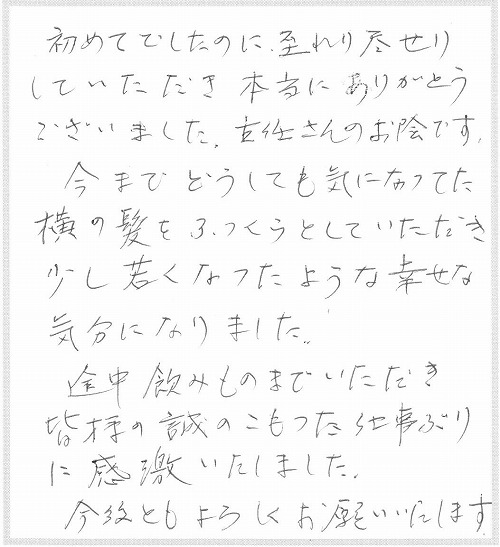 初めてでしたのに、至れり尽せり
していただき 本当にありがとう
ございました。主任さんのお陰です。
今まで どうしても気になってた
横の髪をふっくらとしていただき
少し若くなったような幸せな
気分になりました。
途中 飲みものまでいただき
皆様の誠のこもった仕事ぶり
に感激いたしました。
今後ともよろしくお願いいたします